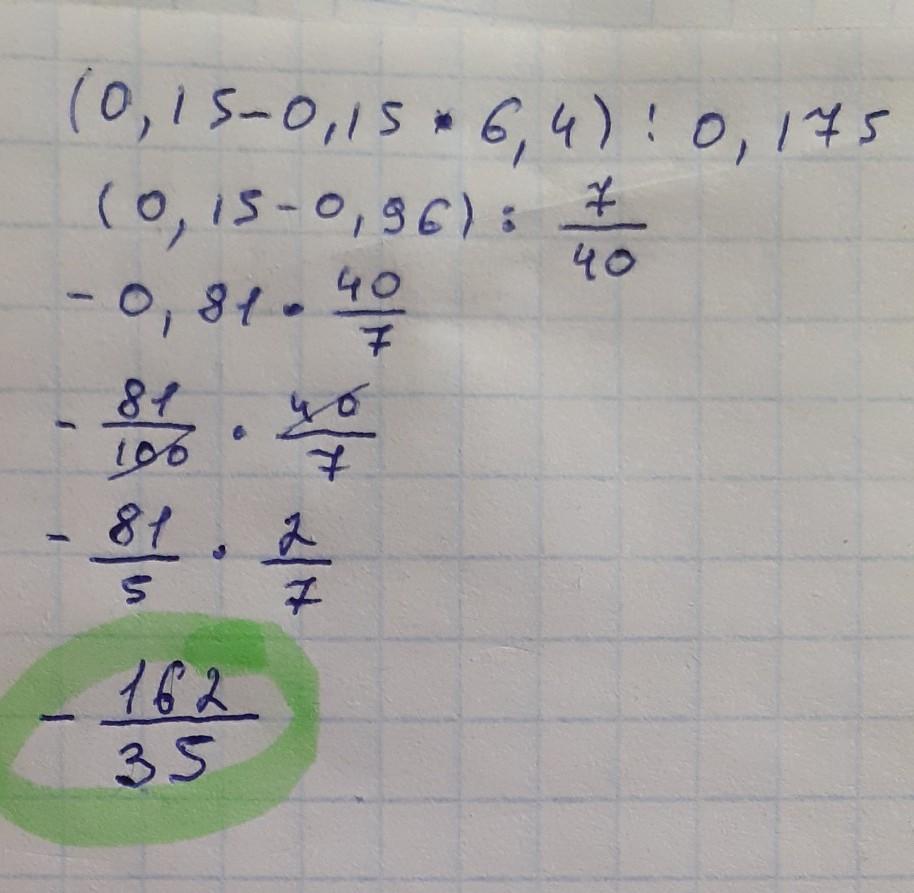 (0,15-0,15 · 6,4) : 0,175
(0,15-0,96) : 7/40
- 0,81 · 40/7
- 81/100 · 40/7
- 81/5 · 2/7
- 162/35